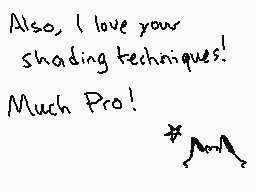 Also, I love your
shading techniques!
Much Pro!